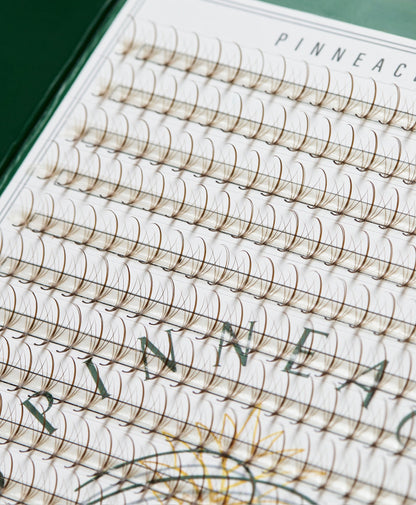 PINNEAC
PINNEAC